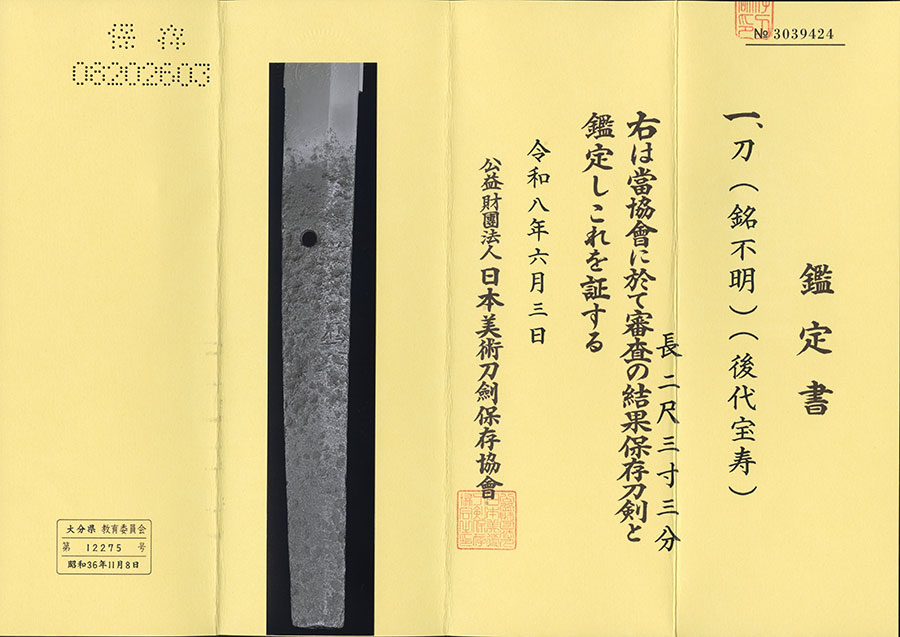 № 3039424
鑑定書
一、刀(銘不明)(後代宝寿)
長二尺三寸三分
右は當協會に於て審査の結果保存刀剣と
鑑定しこれを証する
令和八年六月三日
公益財團法人 日本美術刀劍保存協會
保存
08202603
大分県 教育委員会
第 12275 号
昭和36年11月8日